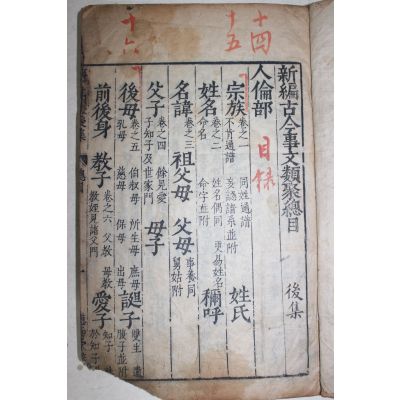 十四
十五
十六
目錄
新編古今事文類聚總目　後集
人倫部
宗族 卷之一 同姓通譜 不肯通譜 妄認譜系並附 姓氏
姓名 卷之二 姓名偶同 更易姓名 命名 命字並附 稱呼
名諱 卷之三 祖父母 父母 事養同 舅姑附
父子 卷之四 餘見愛子知子及世家門 母子
後母 卷之五 伯叔母 所生母 庶母 乳母 慈母 保母 出母 誕子 雙生 遺腹子並附
前後身 教子 卷之六 父教 母教 教姪見諸父門 愛子